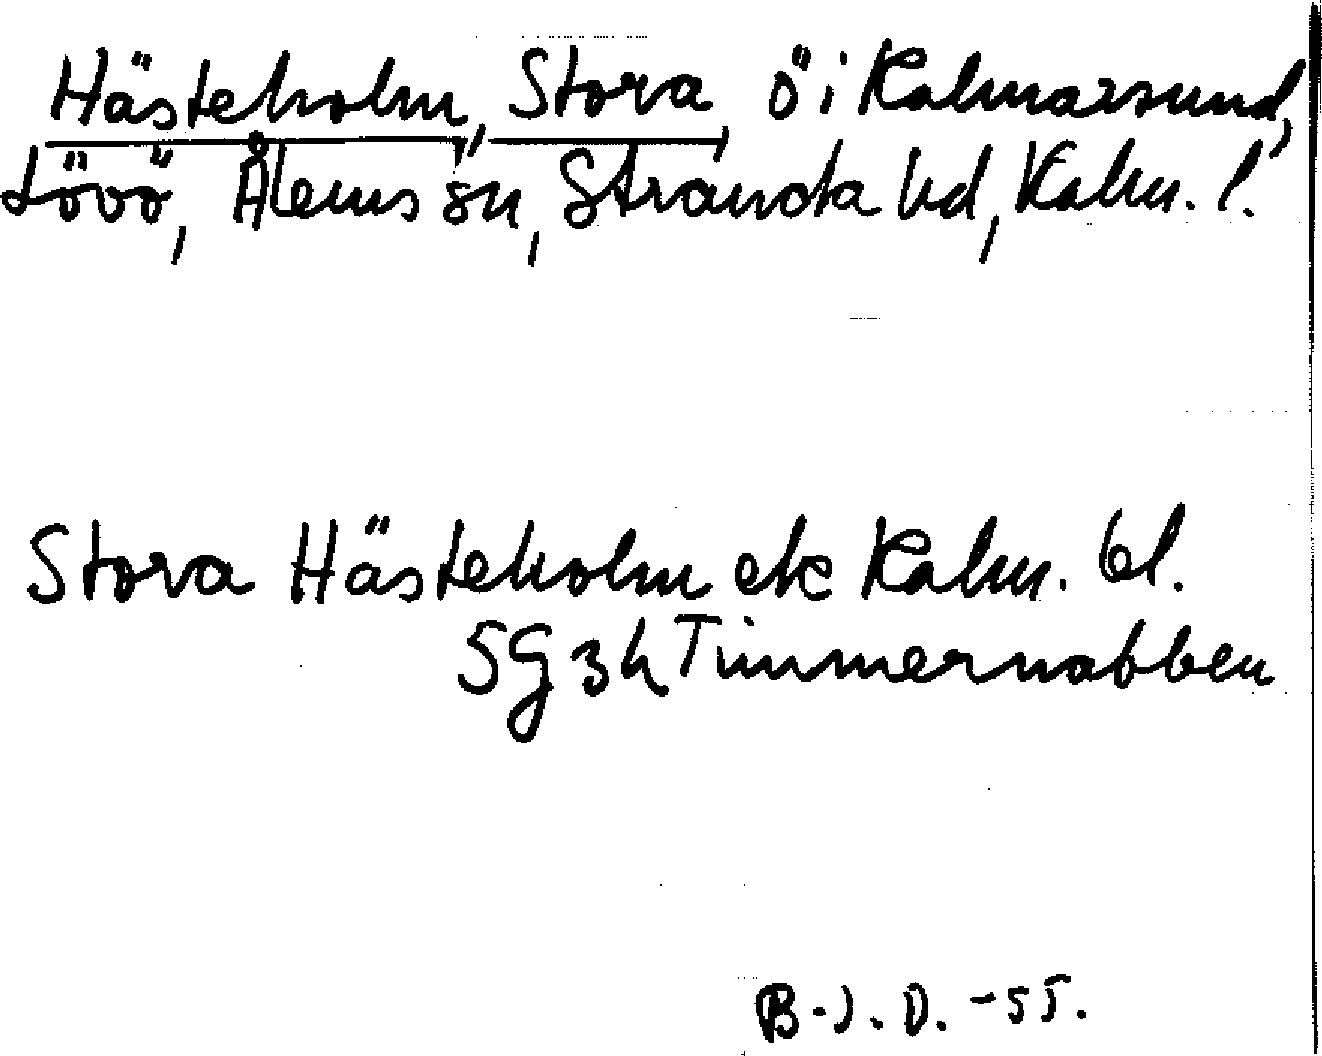 Hästeholm, Stora, ö i Kalmarsund,
Lövö, Ålems sn, Stranda hd, Kalm. l.
Stora Hästeholm ek Kalm. bl.
5G 3h Timmernabben
B-J. D. -55.